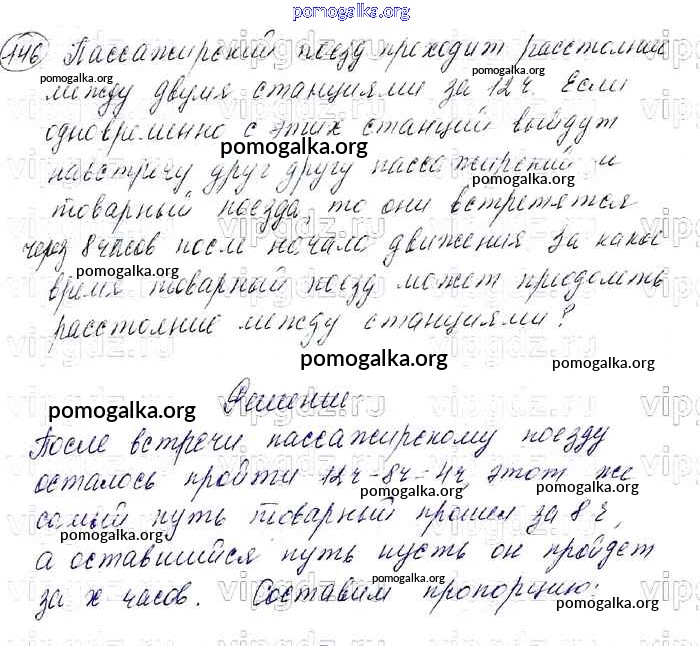 pomogalka.org
146 Пассажирский поезд проходит расстояние
pomogalka.org pomogalka.org
между двумя станциями за 12ч. Если
одновременно с этих станций выйдут
pomogalka.org
навстречу друг другу пассажирский и
pomogalka.org
товарный поезда, то они встретятся
через 8 часов после начала движения. За какое
pomogalka.org
время товарный поезд может преодолеть
расстояние между станциями?
pomogalka.org
Решение.
pomogalka.org
После встречи пассажирскому поезду
осталось пройти 12ч-8ч=4ч, этот же
pomogalka.org pomogalka.org
самый путь товарный прошел за 8ч,
pomogalka.org
а оставшийся путь пусть он пройдет
pomogalka.org
за x часов. Составим пропорцию:
pomogalka.org